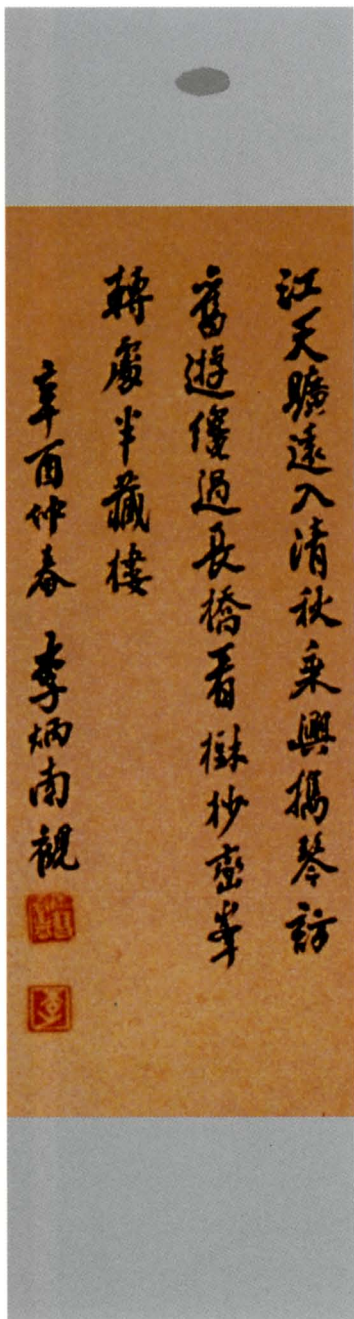 江天曠遠入清秋乘興攜琴訪
舊遊僅過長橋看樹杪巒峯
轉處半藏樓
辛酉仲春 李炳南觀